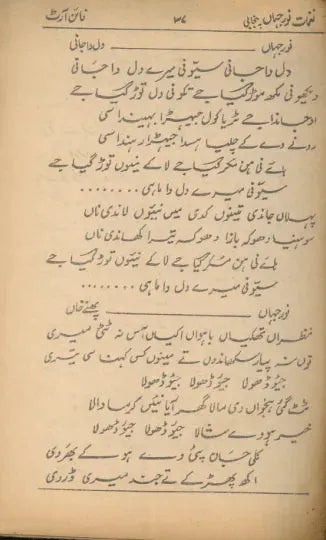 نغمات نورجہاں پنجابی ۳۷ فائن آرٹ
نورجہاں دل دا جانی
دل دا جانی سیّو نی میرے دل دا جانی
ویکھو نی مکھ موڑ گیا جے نکو نی دل توڑ گیا جے
اڈ جاندا جے ٹریا کول جیہڑا بہیندا سی
رونے دے کے چلیا ہسدا جیہڑا رہندا سی
ہائے نی ہن مکر گیا جے لا کے نیوں توڑ گیا جے
سیّو نی میرے دل دا ماہی ........
پہلاں جاندی تینوں کدی میں نیوں لاندی ناں
سوہنیا دھوکہ بازا دھوکہ تیرا کھاندی ناں
ہائے نی ہن مکر گیا جے لا کے نیوں توڑ گیا جے
سیّو نی میرے دل دا ماہی ........
نورجہاں چھنے خاں
نظراں تھکیاں باہواں اکیاں آس نہ ٹٹی میری
توں نہ پیار سکھاندوں تے مینوں کس کہنا سی تیری
جیوڈھولا جیوڈھولا جیوڈھولا
مٹ گئی ہجراں دی سالا گھر آیا نیئں کرماں والا
خیر ہووے شالا جیوڈھولا جیوڈھولا
کلی جان پئی وے ہو کے بھردی
اکھ پھڑکے تے جند میری ڈردی